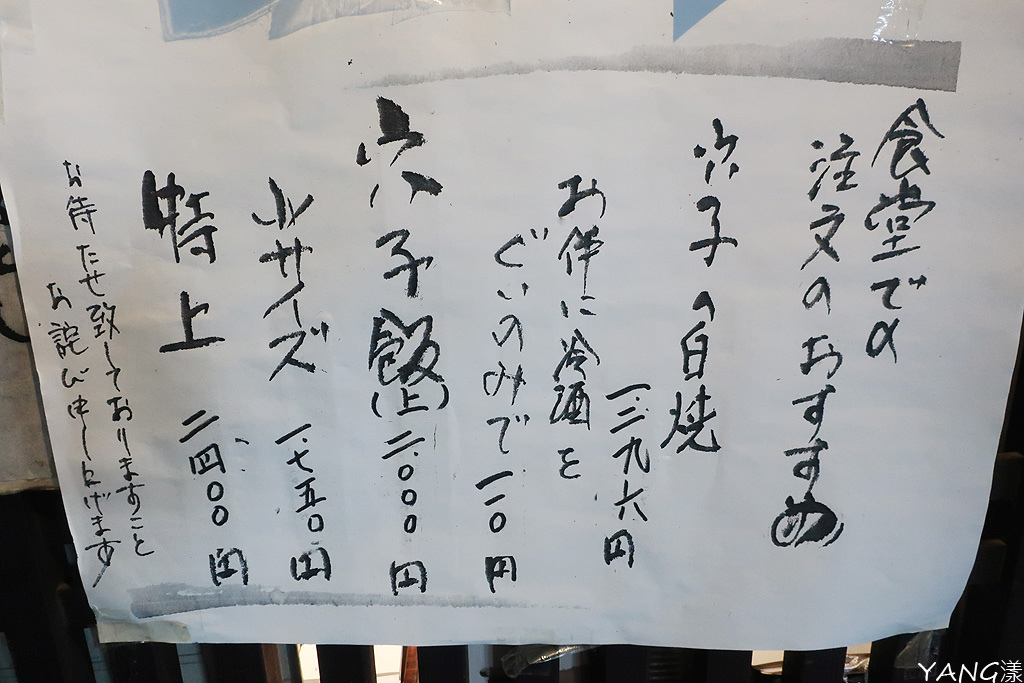 食堂での
注文のおすすめ
穴子の白焼
一.二九六円
お伴に冷酒を
ぐいのみで一一〇円
穴子飯(上)二.〇〇〇円
小サイズ 一.七五〇円
特上 二.四〇〇円
お待たせ致しておりますこと
お詫び申し上げます
YANG漾